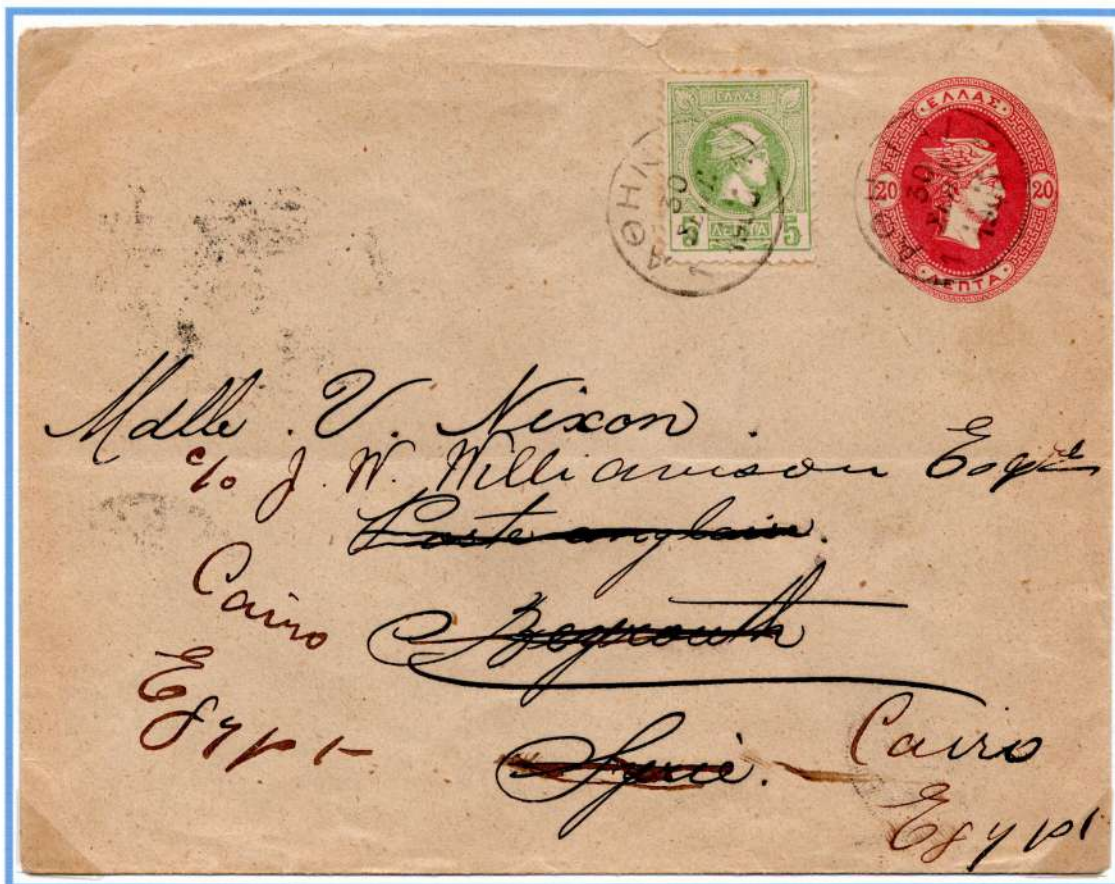 ΕΛΛΑΣ
5 ΛΕΠΤΑ 5
ΕΛΛΑΣ
20 20
ΛΕΠΤΑ
ΑΘΗΝ
30
ΑΘΗ
30
Mdlle. V. Nixon.
c/o J. W. Williamson Esqre
Poste anglaise.
Cairo
Beyrouth
Egypt
Syrie. Cairo
Egypt